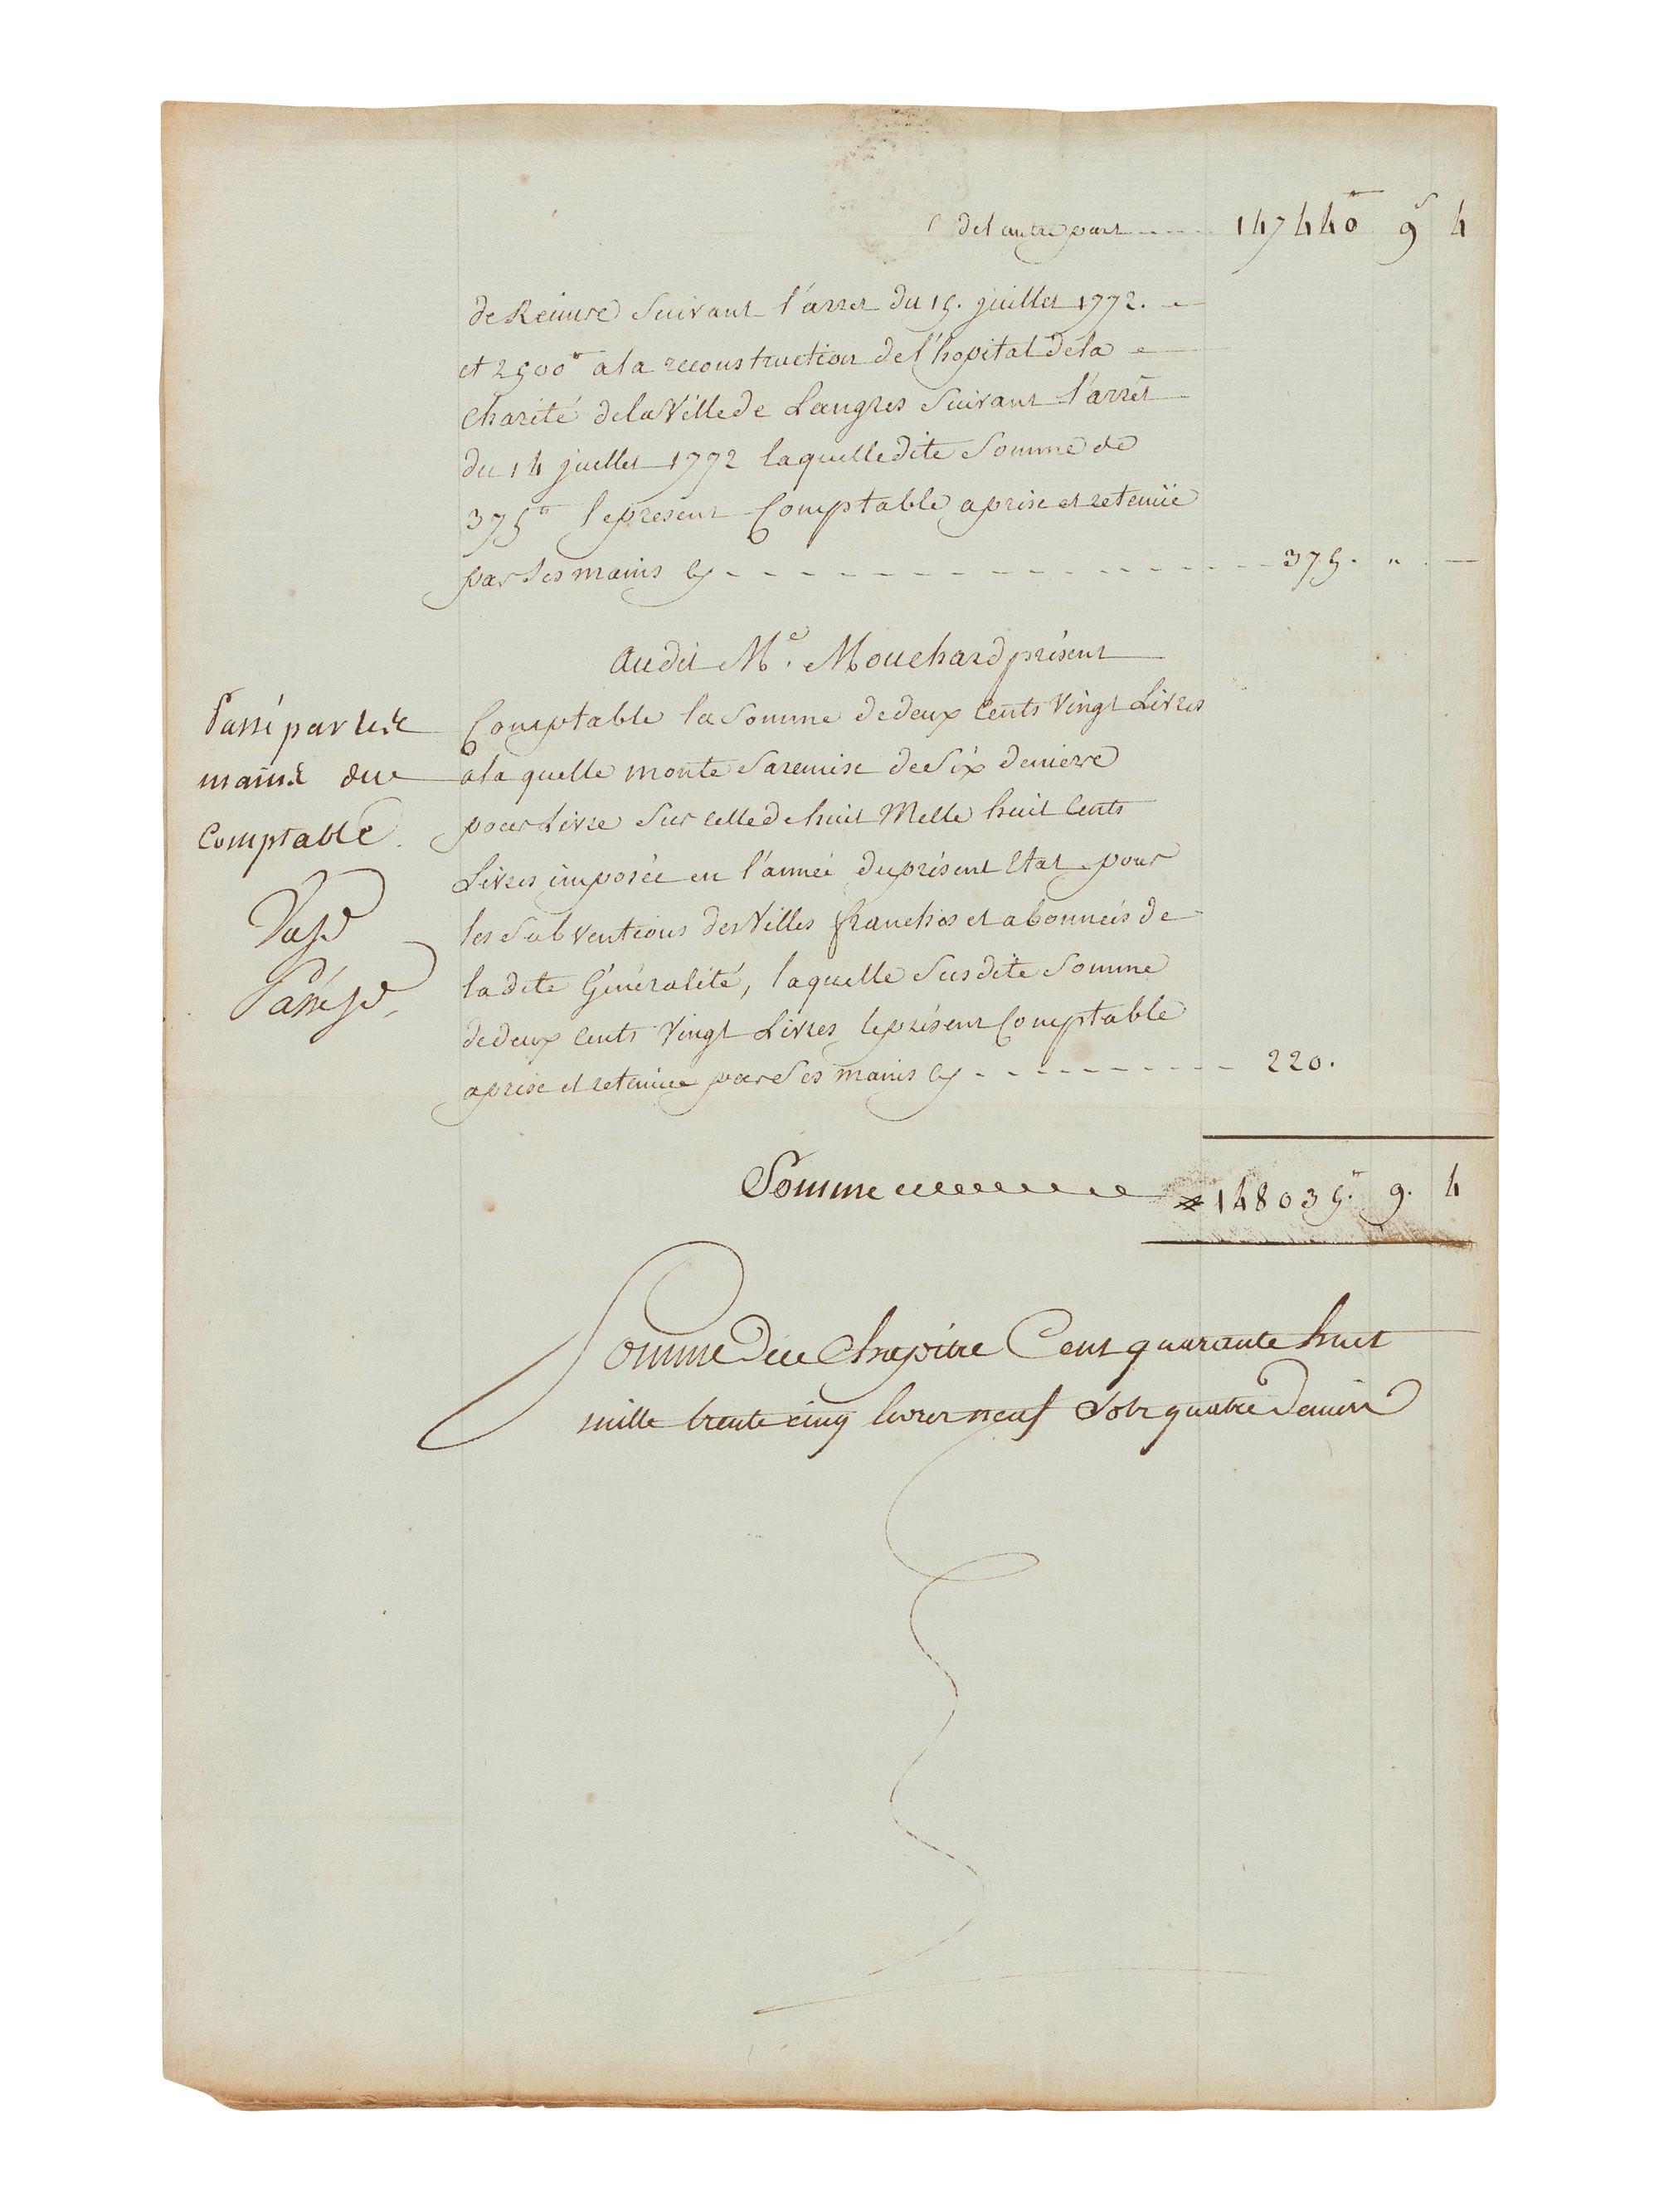 de l'autre part ---- 147440 ₶ 9 s 4
de Reims suivant l'arret du 15. juillet 1772.
et 2500 ₶ a la reconstruction de l'hopital de la
Charité de la Ville de Langres suivant l'arrét
du 14 juillet 1772 laquelle dite somme de
375 ₶ le present Comptable a prise et retenüe
par ses mains cy - - - - - - - - - - 375. " . —
audit Me. Mouchard présent
Comptable la somme de deux Cents Vingt Livres
a laquelle monte sa remise de Six deniers
pour Livre sur celle de huit Mille huit Cents
Livres imposée en l'année du présent Etat pour
les subventions des Villes franches et abonneés de
ladite Généralité, laquelle susdite somme
de deux Cents Vingt Livres le présent Comptable
a prise et retenüe par ses mains cy - - - - - - - 220.
Passé par les
mains du
Comptable.
Passé
Somme 148035 ₶. 9. 4
Somme du Chapitre Cent quarante huit
mille trente cinq livres neuf sols quatre deniers